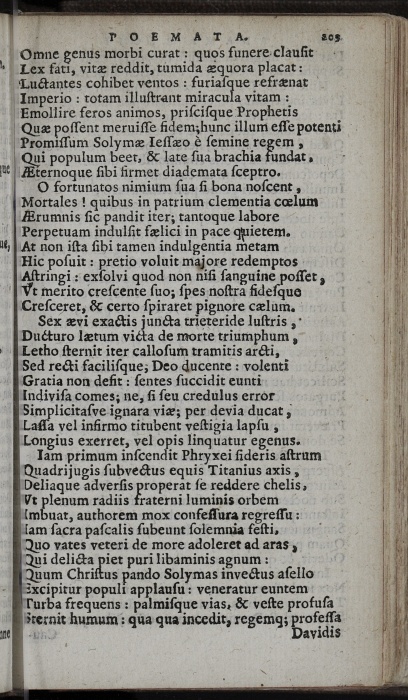 POEMATA. 203
Omne genus morbi curat : quos funere clausit
Lex fati, vitæ reddit, tumida æquora placat :
Luctantes cohibet ventos : furiasque refrænat
Imperio : totam illustrant miracula vitam :
Emollire feros animos, priscisque Prophetis
Quæ possent meruisse fidem; hunc illum esse potenti
Promissum Solymæ Iessæo è semine regem ,
Qui populum beet, & late sua brachia fundat ,
Æternoque sibi firmet diademata sceptro.
O fortunatos nimium sua si bona noscent ,
Mortales ! quibus in patrium clementia cœlum
Ærumnis sic pandit iter; tantoque labore
Perpetuam indulsit fælici in pace quietem.
At non ista sibi tamen indulgentia metam
Hic posuit : pretio voluit majore redemptos
Astringi : exsolvi quod non nisi sanguine posset ,
Vt merito crescente suo; spes nostra fidesque
Cresceret, & certo spiraret pignore cælum.
Sex ævi exactis juncta trieteride lustris ,
Ducturo lætum victa de morte triumphum ,
Letho sternit iter callosum tramitis arcti,
Sed recti facilisque; Deo ducente : volenti
Gratia non desit : sentes succidit eunti
Indivisa comes; ne, si seu credulus error
Simplicitasve ignara viæ; per devia ducat ,
Lassa vel infirmo titubent vestigia lapsu ,
Longius exerret, vel opis linquatur egenus.
Iam primum inscendit Phryxei sideris astrum
Quadrijugis subvectus equis Titanius axis ,
Deliaque adversis properat se reddere chelis,
Vt plenum radiis fraterni luminis orbem
Imbuat, authorem mox confessura regressu :
Iam sacra pascalis subeunt solemnia festi,
Quo vates veteri de more adoleret ad aras ,
Qui delicta piet puri libaminis agnum :
Quum Christus pando Solymas invectus asello
Excipitur populi applausu : veneratur euntem
Turba frequens : palmisque vias, & veste profusa
Sternit humum : qua qua incedit, regemq; professa
Davidis